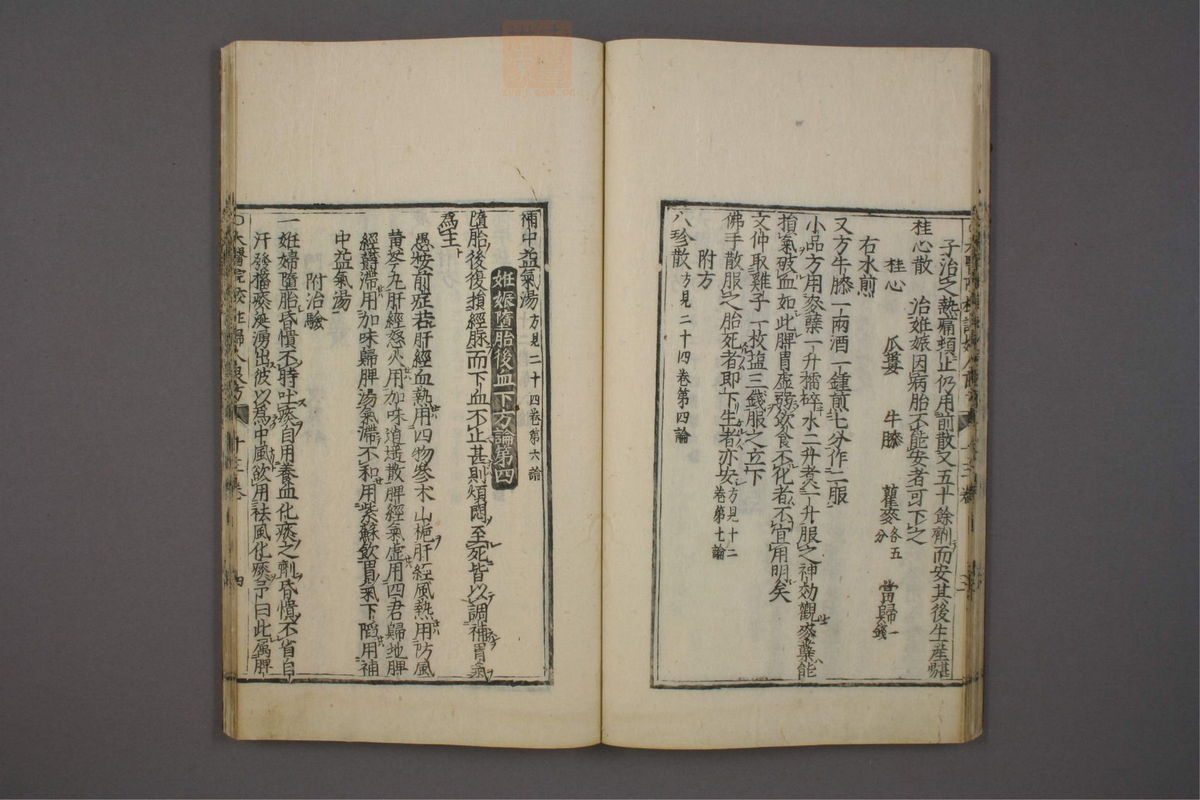 子治之熱痛頓止仍用前散又五十餘劑而安其後生産甚易
桂心散　治妊娠因病胎不能安者可下之
桂心　瓜蔞　牛膝　瞿麥各五分　當歸一錢
右水煎
又方牛膝一兩酒一鍾煎七分作二服
小品方用麥蘖一升擂碎水二升煮一升服之神効觀麥蘖能
損氣破血如此脾胃虚弱飲食不化者不宜用明矣
文仲取雞子一枚塩三錢服之立下
佛手散服之胎死者即下生者亦安方見十二卷第七論
附方
八珍散方見二十四卷第四論
補中益氣湯方見二十四卷第六論
妊娠墮胎後血下方論第四
墮胎後復損經脉而下血不止甚則煩悶至死皆以調補胃氣
為主
愚按前症若肝經血熱用四物參术山梔肝經風熱用防風
黄芩丸肝經怒火用加味逍遥散脾經氣虚用四君歸地脾
經鬱滯用加味歸脾湯氣滯不和用紫蘇飲胃氣下陷用補
中益氣湯
附治驗
一妊婦墮胎昏憒不時吐痰自用養血化痰之劑昏憒不省自
汗發搐痰涎湧出彼以為中風欲用祛風化痰予曰此属脾
太醫院校註婦人良方　十三卷　四